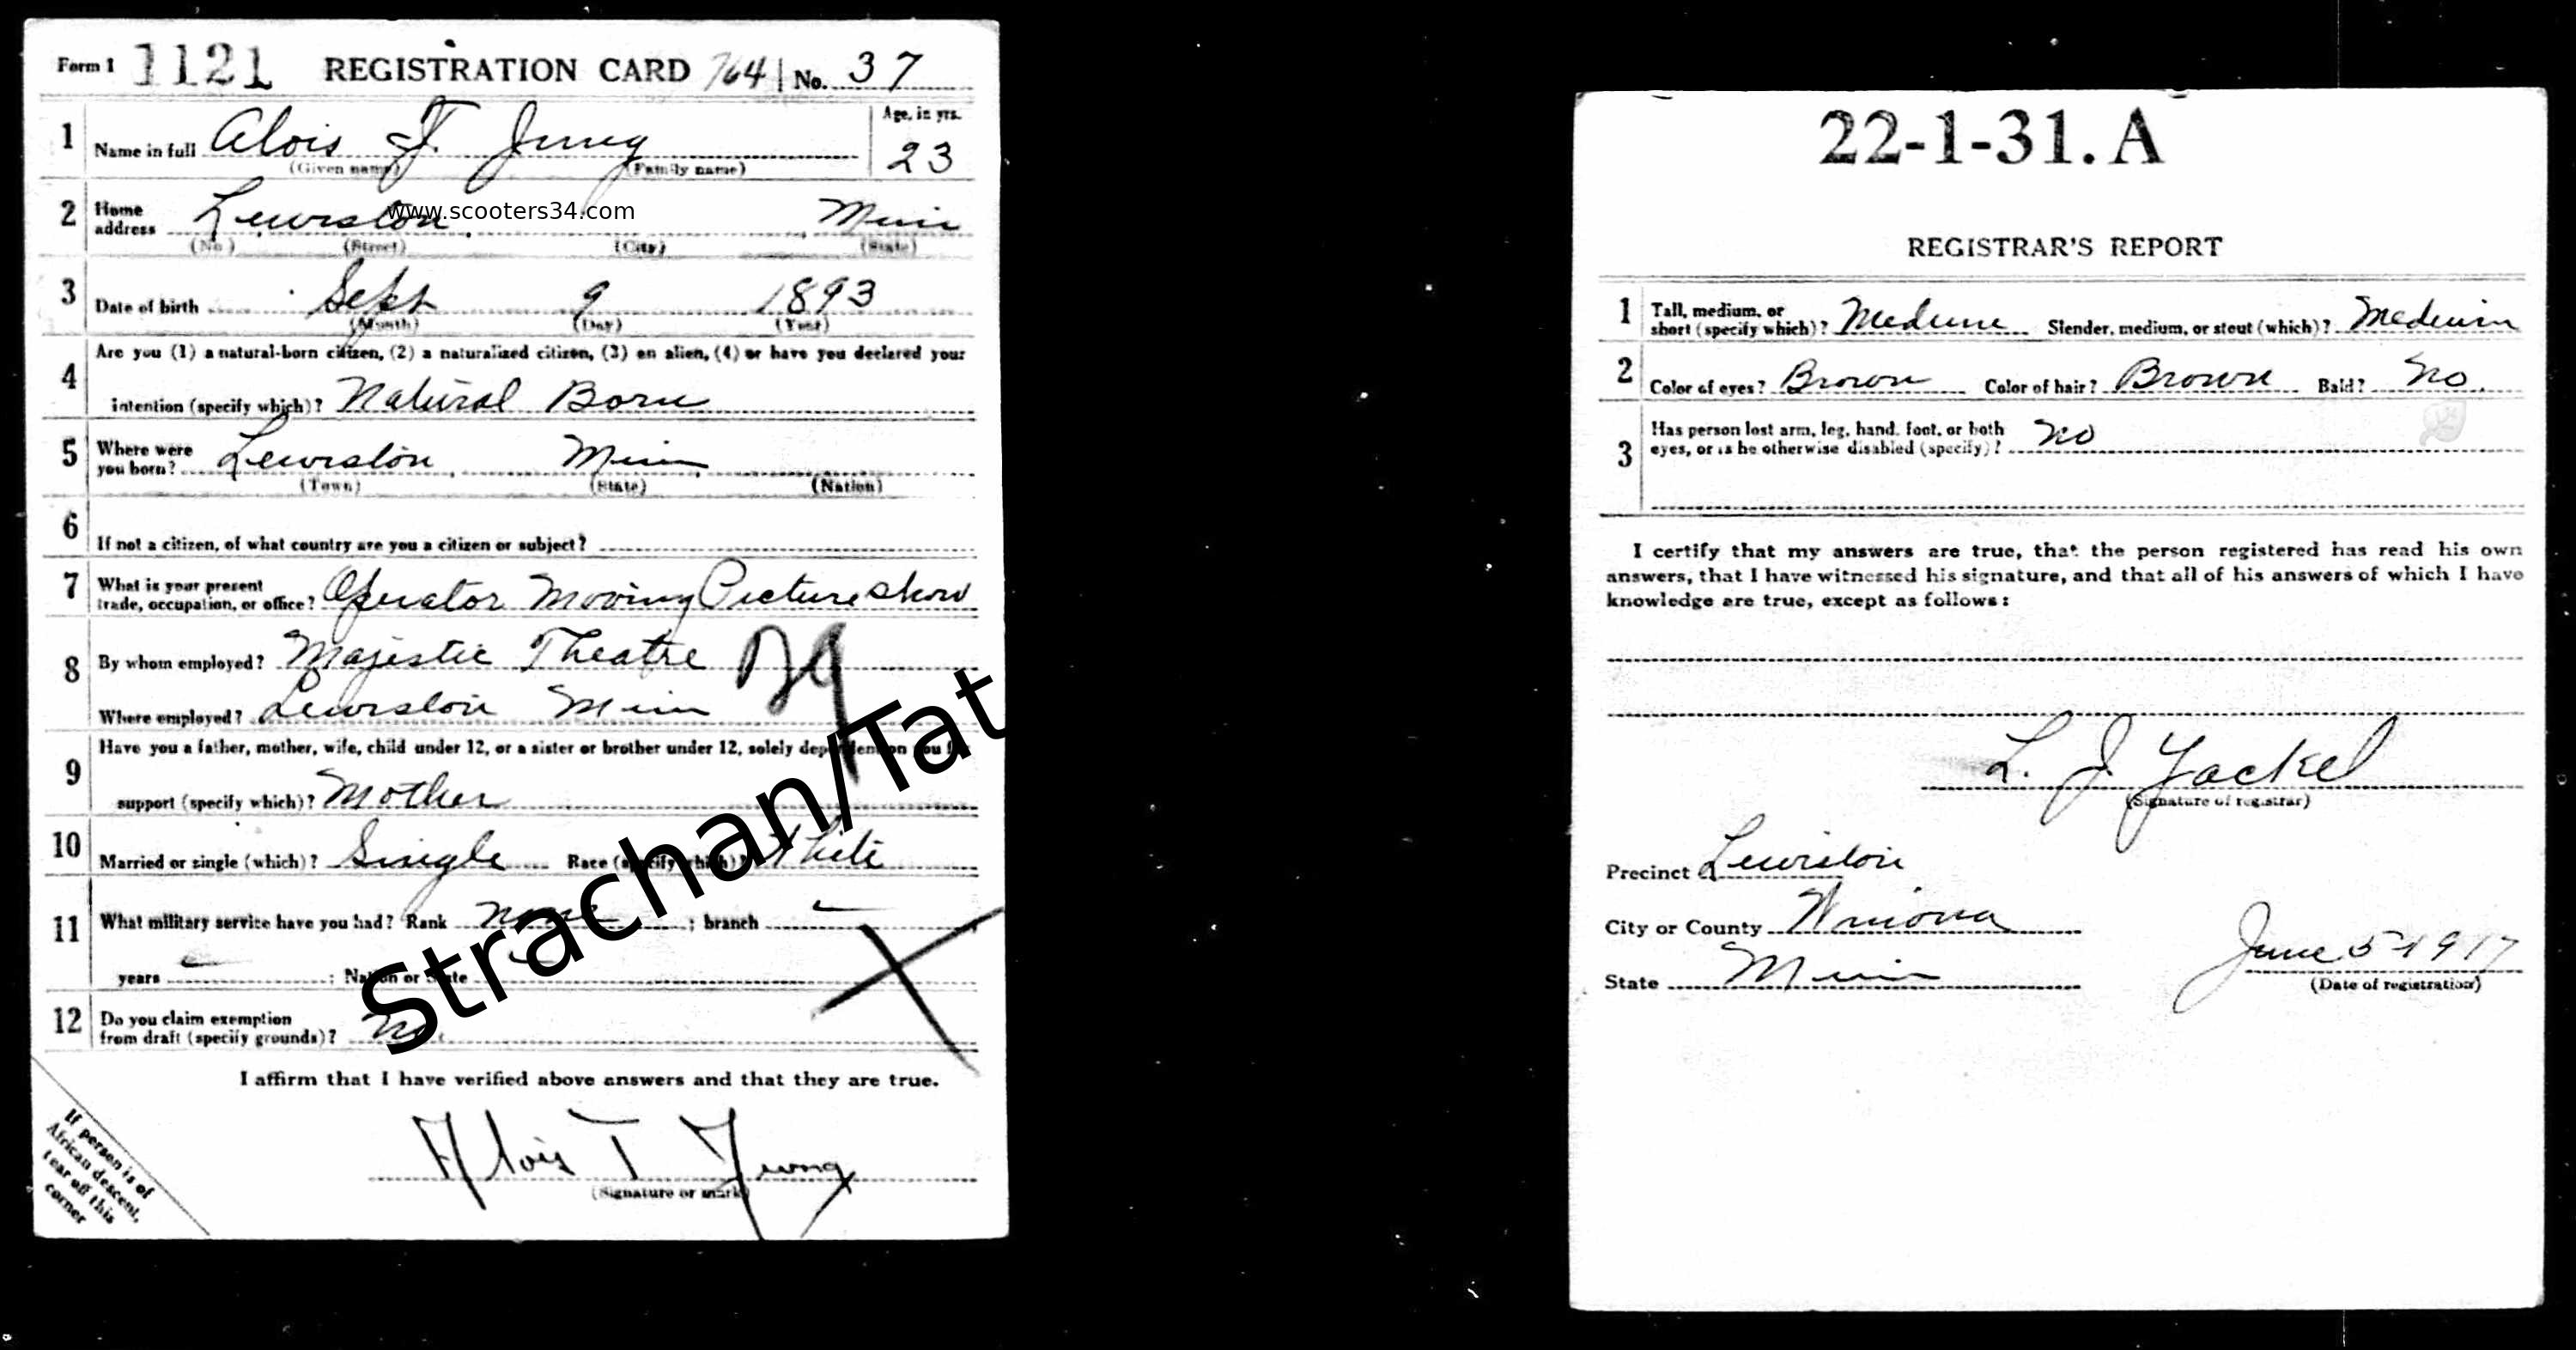 Form 1 1121 REGISTRATION CARD 764 No. 37
1 Name in full Alois T. Jung
(Given name) (Family name)
Age, in yrs.
23
2 Home address Lewiston Minn
www.scooters34.com
(No.) (Street) (City) (State)
3 Date of birth Sept 9 1893
(Month) (Day) (Year)
4 Are you (1) a natural-born citizen, (2) a naturalized citizen, (3) an alien, (4) or have you declared your
intention (specify which)? Natural Born
5 Where were you born? Lewiston, Minn
(Town) (State) (Nation)
6 If not a citizen, of what country are you a citizen or subject?
7 What is your present
trade, occupation, or office? Operator Moving Picture show
8 By whom employed? Majestic Theatre
Where employed? Lewiston Minn
9 Have you a father, mother, wife, child under 12, or a sister or brother under 12, solely dependent on you for
support (specify which)? Mother
10 Married or single (which)? Single Race (specify which)? White
11 What military service have you had? Rank none ; branch
years ; Nation or State
Strachan/Tat
12 Do you claim exemption
from draft (specify grounds)? No.
I affirm that I have verified above answers and that they are true.
Alois T Jung
(Signature or mark)
If person is of
African descent,
tear off this
corner
22-1-31. A
REGISTRAR'S REPORT
1 Tall, medium, or
short (specify which)? Medium Slender, medium, or stout (which)? Medium
2 Color of eyes? Brown Color of hair? Brown Bald? No.
3 Has person lost arm, leg, hand, foot, or both
eyes, or is he otherwise disabled (specify)? No
I certify that my answers are true, that the person registered has read his own
answers, that I have witnessed his signature, and that all of his answers of which I have
knowledge are true, except as follows:
L. J. Yackel
(Signature of registrar)
Precinct Lewiston
City or County Winona
State Minn
June 5-1917
(Date of registration)